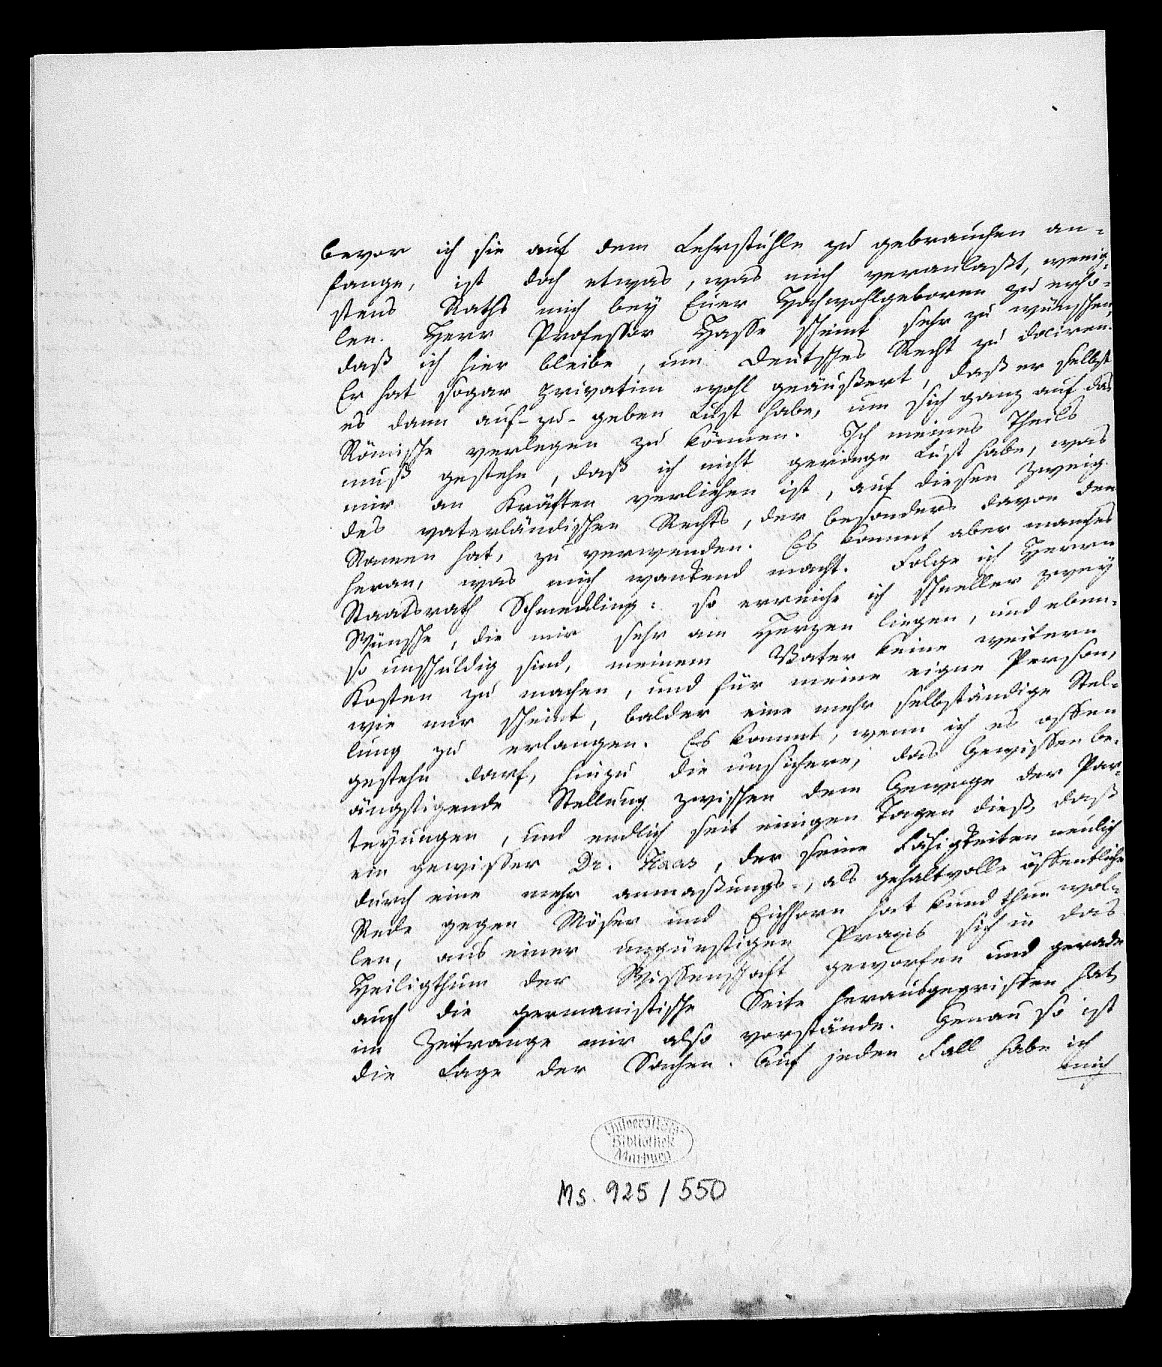 bevor ich sie auf dem Lehrstuhle zu gebrauchen an-
fange, ist doch etwas, was mich veranlaßt, wenig-
stens Raths mich bey Euer Hochwohlgeboren zu erho-
len. Herr Professor Hasse scheint sehr zu wünschen,
daß ich hier bleibe, um Deutsches Recht zu dociren.
Er hat sogar privatim wohl geäußert, daß er selbst
es dann auf-zu-geben Lust habe, um sich ganz auf das
Römische verlegen zu können. Ich meines Theils
muß gestehn, daß ich nicht geringe Lust habe, was
mir an Kräften verliehen ist, auf diesen Zweig
des vaterländischen Rechts, der besonders davon den
Namen hat, zu verwenden. Es kommt aber manches
heran, was mich wankend macht. Folge ich Herrn
Staatsrath Schmedding: so erreiche ich schneller zwey
Wünsche, die mir sehr am Herzen liegen, und eben-
so unschuldig sind, meinem Vater keine weitern
Kosten zu machen, und für meine eigne Person,
wie mir scheint, balder eine mehr selbständige Stel-
lung zu erlangen. Es kommt, wenn ich es offen
gestehn darf, hinzu die unsichere, das Gewissen be-
ängstigende Stellung zwischen dem Gewoge der Par-
teyungen, und endlich seit einigen Tagen dieß, daß
ein gewisser Dr. Haas, der seine Fähigkeiten neulich
durch eine mehr anmaßungs-, als gehaltvolle öffentliche
Rede gegen Möser und Eichhorn hat kund thun wol-
len, aus einer ungünstigen Praxis sich in das
Heiligthum der Wissenschaft geworfen und gerade
auch die germanistische Seite herausgegriffen hat,
im Zeitrange mir also vorstände. Genau so ist
die Lage der Sachen. Auf jeden Fall habe ich
mich
Universitäts-
Bibliothek
Marburg
Ms. 925 / 550